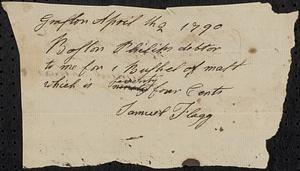 Grafton April th 2 1790
Boston Philips debtor
to me for 1 Bushel of malt
which is seventy four Cents
Samuel Flagg